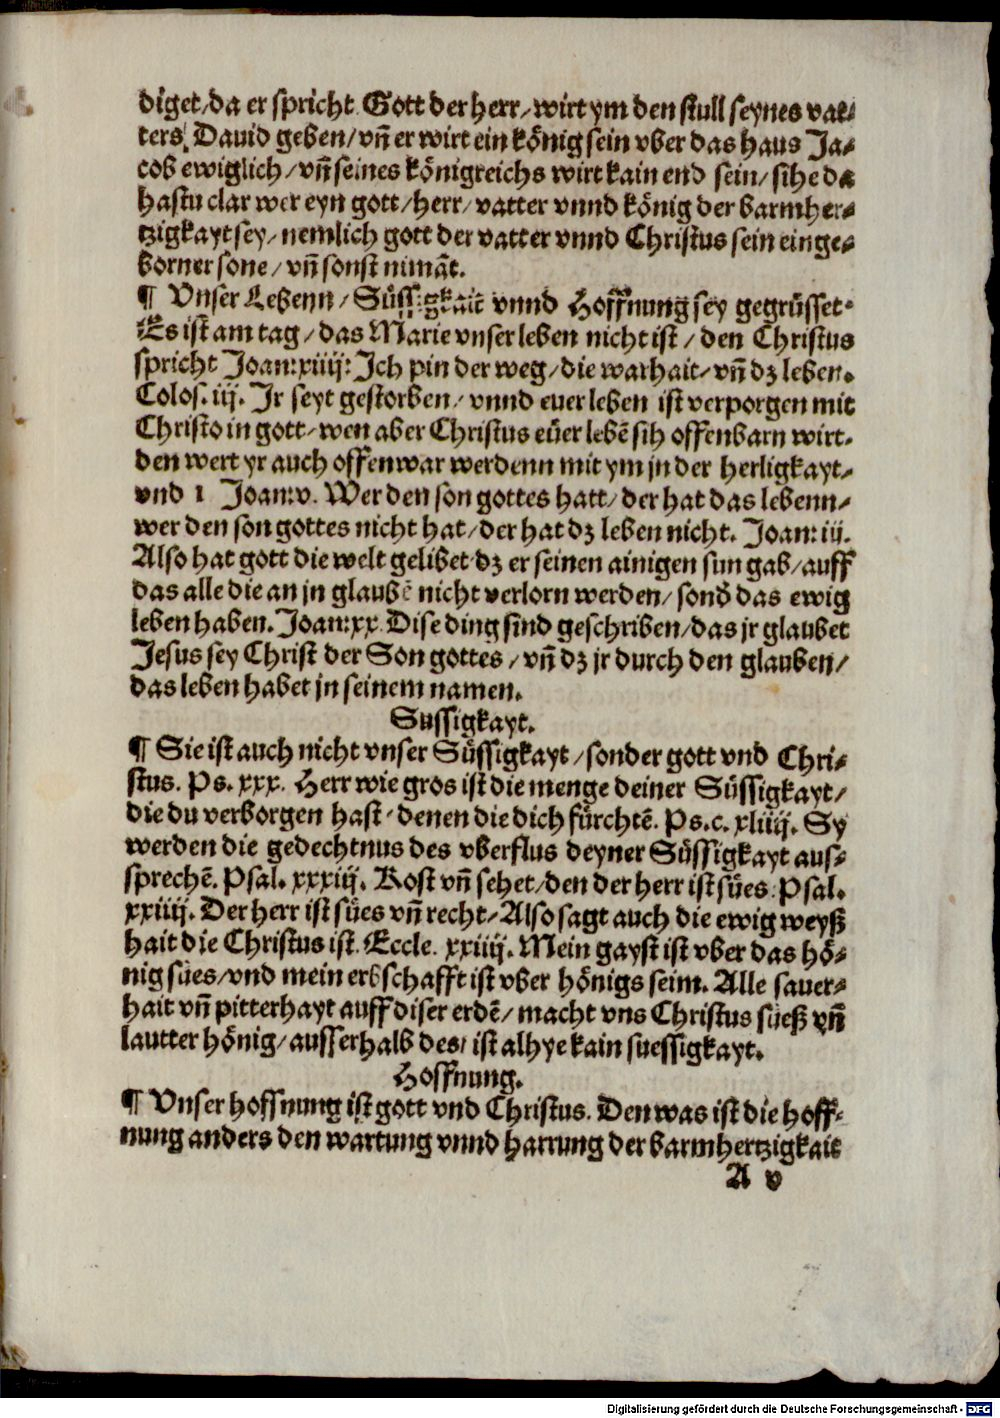 diget/da er spricht Gott der herr/wirt ym den stull seynes vat⸗
ters David geben/vñ er wirt ein könig sein vber das haus Ja⸗
cob ewiglich/vñ seines königreichs wirt kain end sein/sihe da
hastu clar wer eyn gott/herr/vatter vnnd könig der barmher⸗
tzigkayt sey/nemlich gott der vatter vnnd Christus sein einge⸗
borner sone/vñ sonst nimãt.
¶ Vnser Lebenn/Süssigkait vnnd Hoffnung sey gegrüsset.
Es ist am tag/das Marie vnser leben nicht ist/den Christus
spricht Joan:xiiij: Ich pin der weg/die warhait/vñ dz leben.
Colos. iij. Ir seyt gestorben/vnnd euer leben ist verporgen mit
Christo in gott/wen aber Christus eüer lebẽ sih offenbarn wirt.
den wert yr auch offenwar werdenn mit ym jn der herligkayt/
vnd 1 Joan:v. Wer den son gottes hatt/der hat das lebenn/
wer den son gottes nicht hat/der hat dz leben nicht. Joan: iij.
Also hat gott die welt gelibet dz er seinen ainigen sun gab/auff
das alle die an jn glaubẽ nicht verlorn werden/sonď das ewig
leben haben. Joan:xx. Dise ding sind geschriben/das jr glaubet
Jesus sey Christ der Son gottes/vñ dz jr durch den glauben/
das leben habet jn seinem namen.
Sussigkayt.
¶ Sie ist auch nicht vnser Süssigkayt/sonder gott vnd Chri⸗
stus. Ps. xxx. Herr wie gros ist die menge deiner Süssigkayt/
die du verborgen hast/denen die dich fürchtẽ. Ps.c. xliiij. Sy
werden die gedechtnus des vberflus deyner Süssigkayt aus⸗
sprechẽ. Psal. xxxiij. Kost vñ sehet/den der herr ist sües. Psal.
xxiiij. Der herr ist sües vñ recht/Also sagt auch die ewig weyß
hait die Christus ist. Eccle. xxiiij. Mein gayst ist vber das hö⸗
nig sües/vnd mein erbschafft ist vber hönigs seim. Alle sauer⸗
hait vñ pitterhayt auff diser erdẽ/macht vns Christus süeß vñ
lautter hönig/ausserhalb des/ist alhye kain suessigkayt.
Hoffnung.
¶ Vnser hoffnung ist gott vnd Christus. Den was ist die hoff⸗
nung anders den wartung vnnd harrung der barmhertzigkait
A v
Digitalisierung gefördert durch die Deutsche Forschungsgemeinschaft - DFG